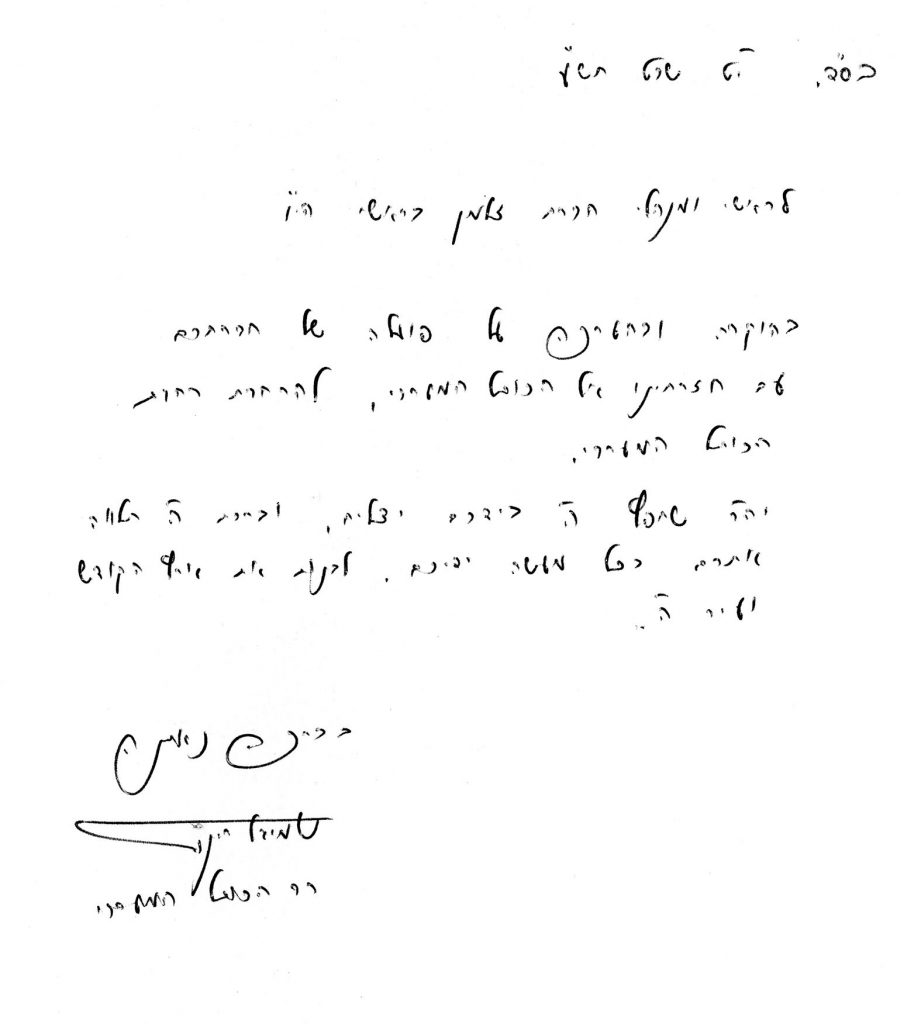 בס"ד, י"ט שבט תש"ע
לראשי ומנהלי חברת זלמן בראשי הי"ו
בהוקרה ובהערכה על פועלה של חברתכם
עב חזרתינו אל הכותל המערבי, להרחבת רחבת
הכותל המערבי.
יה"ר שחפץ ה' בידכם יצליח, וברכת ה' תלווה
אתכם בכל מעשה ידיכם, לבנות את ארץ הקודש
ועיר ה'.
בברכה נאמנה
שמואל רבינוביץ
רב הכותל המערבי